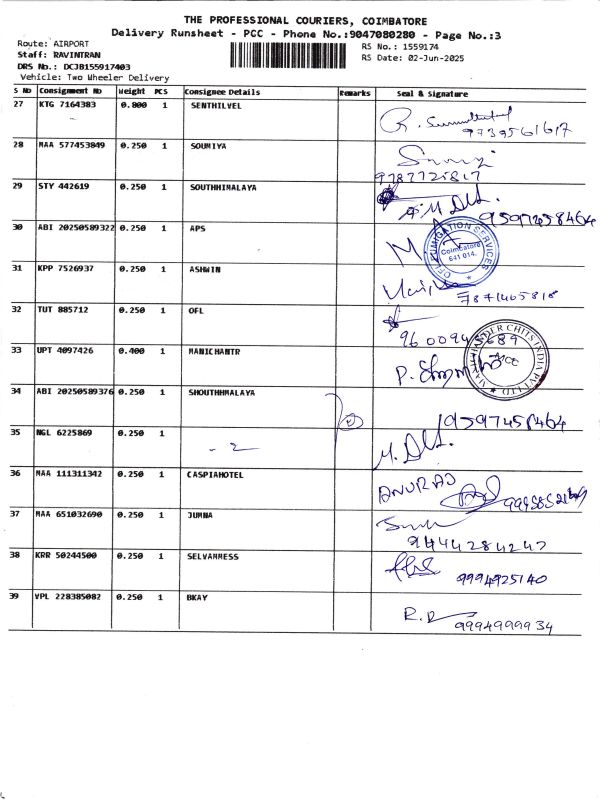 THE PROFESSIONAL COURIERS, COIMBATORE
Delivery Runsheet - PCC - Phone No.:9047080280 - Page No.:3
Route: AIRPORT
Staff: RAVINTRAN
DRS No.: DCJB155917403
Vehicle: Two Wheeler Delivery
RS No.: 1559174
RS Date: 02-Jun-2025
S No Consignment No Weight PCS Consignee Details Remarks Seal & Signature
27 KTG 7164383 0.800 1 SENTHILVEL
28 MAA 577453849 0.250 1 SOUMIYA
9787725817
29 STY 442619 0.250 1 SOUTHHIMALAYA
9597458464
30 ABI 20250589322 0.250 1 APS
OFL FUMIGATION SERVICES
Coimbatore
641 014.
31 KPP 7526937 0.250 1 ASHWIN
7871465818
32 TUT 885712 0.250 1 OFL
33 UPT 4097426 0.400 1 MANICHANTR
34 ABI 20250589376 0.250 1 SHOUTHHMALAYA
9597458464
35 NGL 6225869 0.250 1
36 MAA 111311342 0.250 1 CASPIAHOTEL
ANURAJ
37 MAA 651032690 0.250 1 JUMNA
9444284247
38 KRR 50244500 0.250 1 SELVAMMESS
9994925140
39 VPL 228385082 0.250 1 BKAY
9994999934